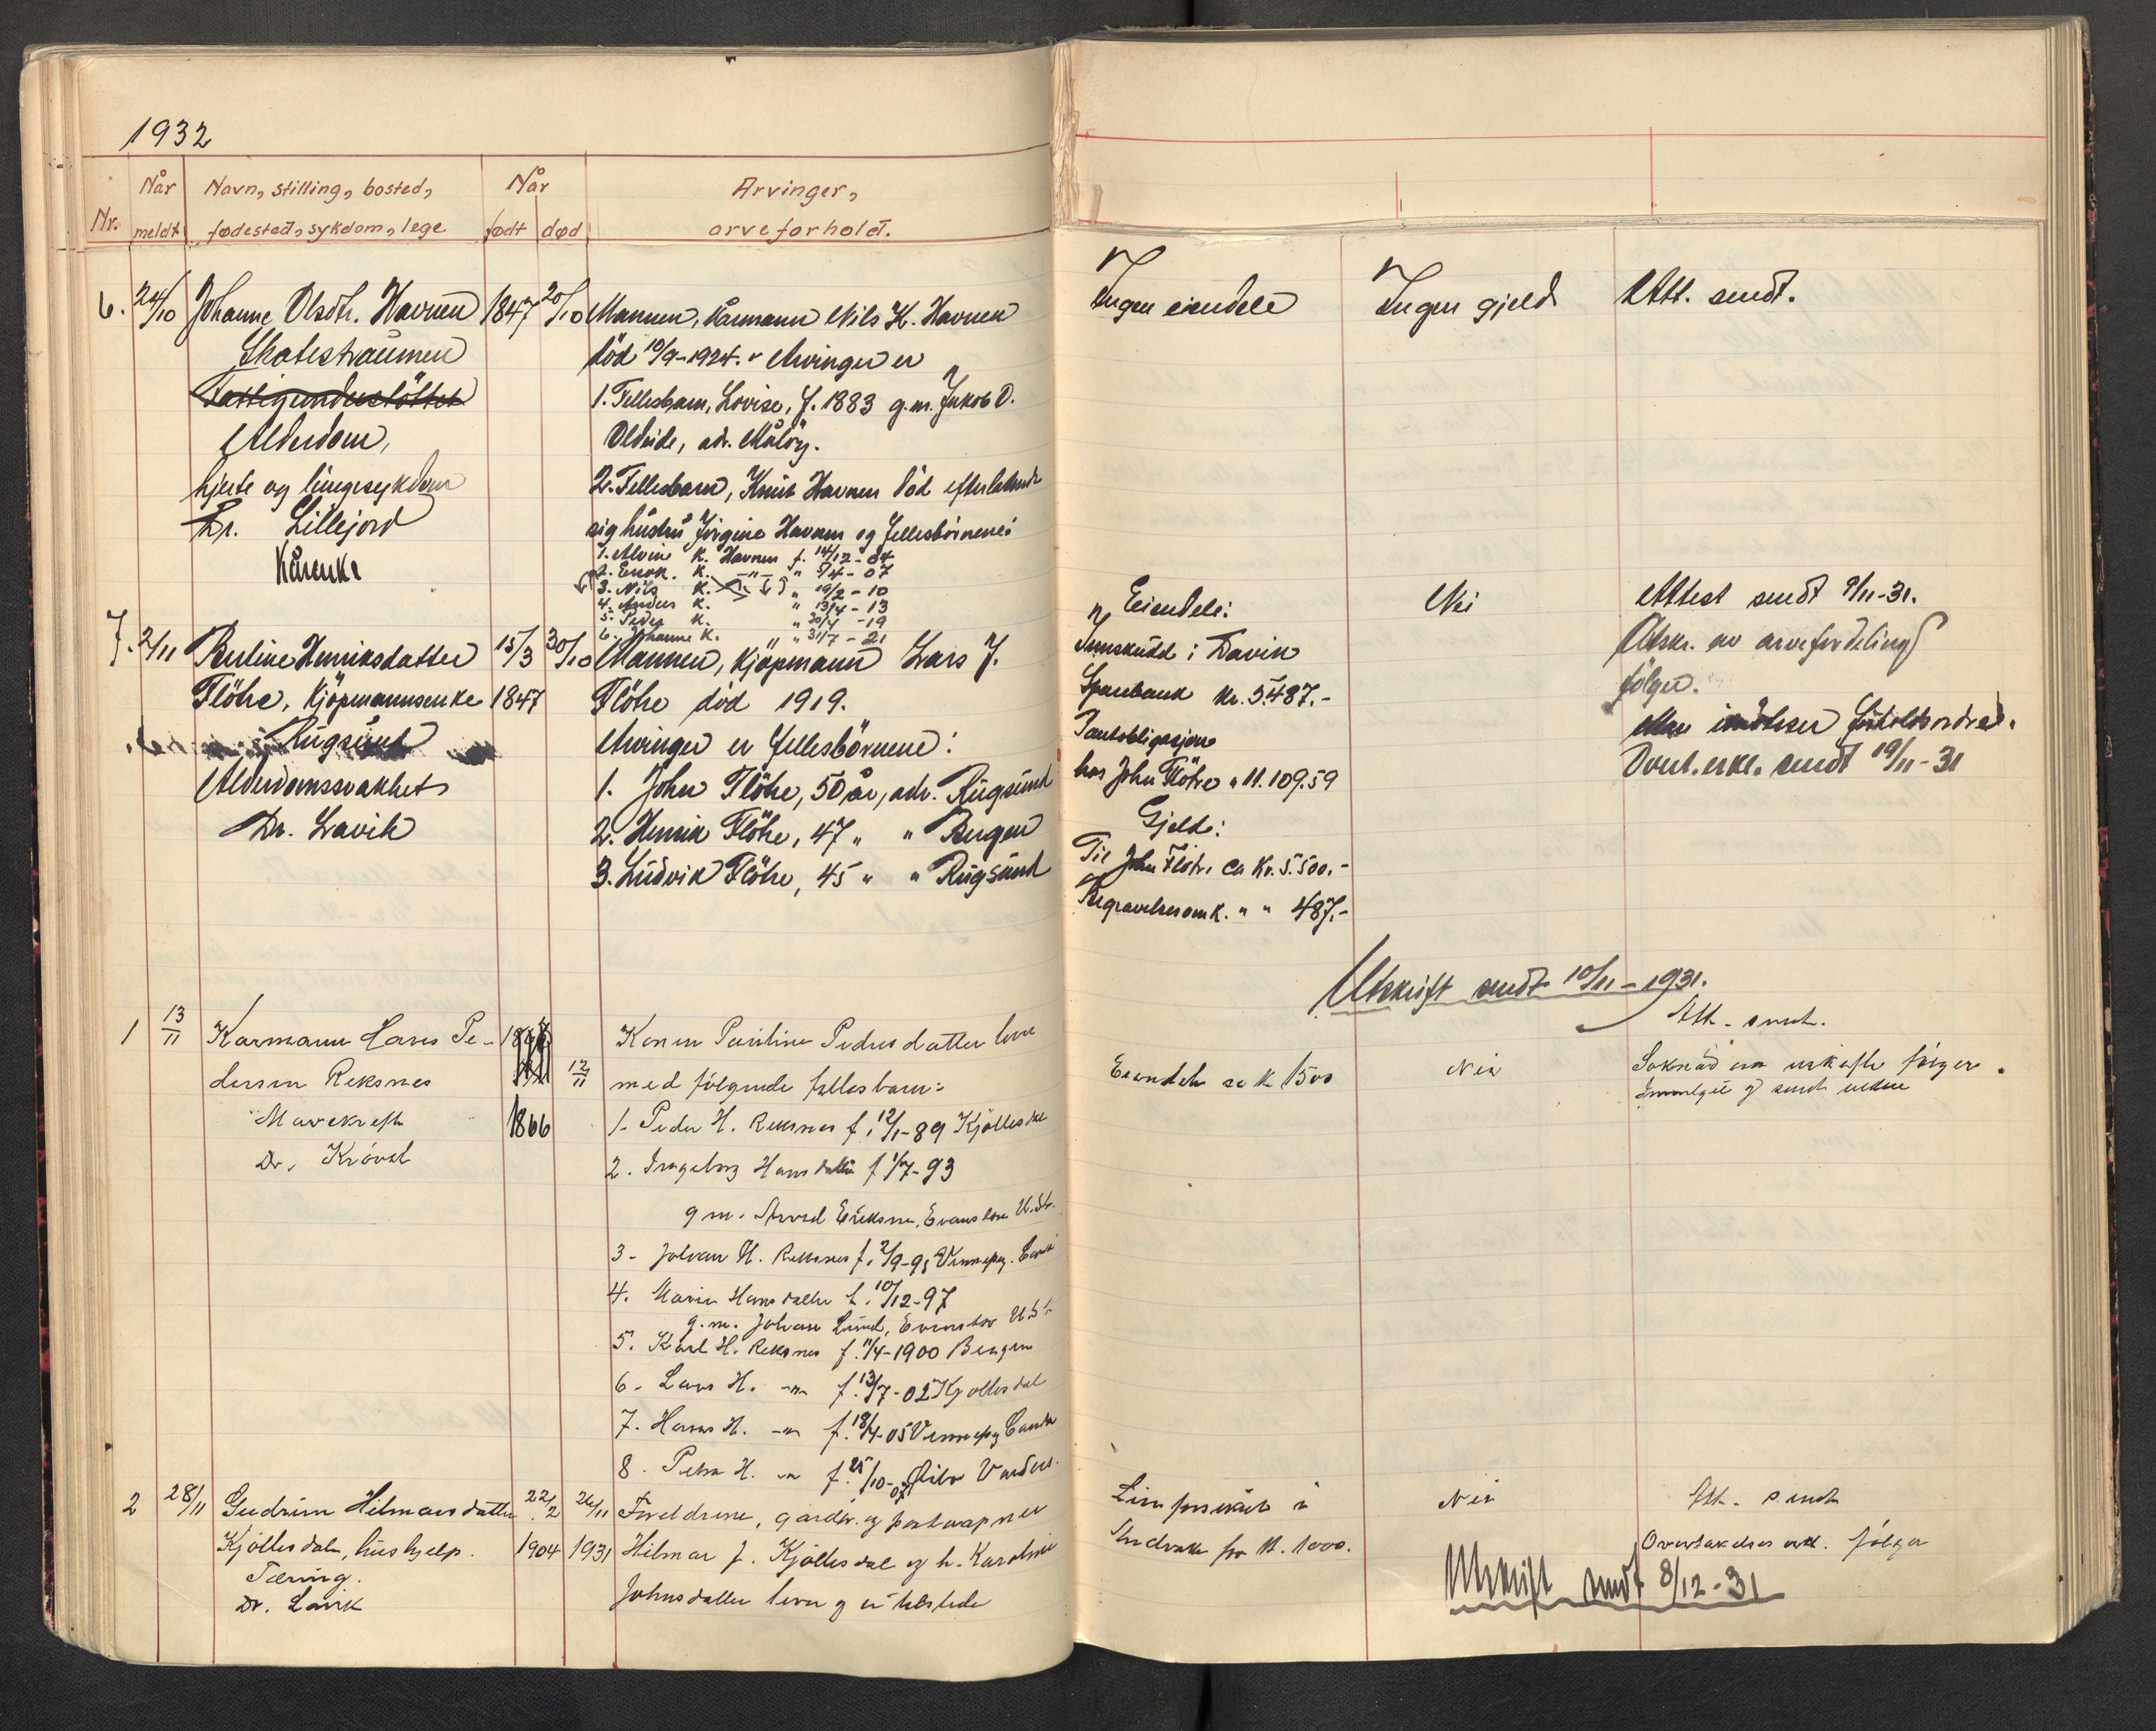 1932
Når Navn, stilling, bosted, Når Arvinger,
Nr. meldt fødested, sykdom, lege født død arveforhold.
6. 24/10 Johanne Olsdtr. Havnen 1847 20/10 Mannen, kårmann Nils K. Havnen
Skatestraumen død 10/9-1924. Arvinger er
Fattigunderstöttet 1. Fellesbarn, Lovise, f. 1883 g.m. Jakob O.
Alderdom, Oldeide, adr. Måløy.
hjerte og lungesykdom 2. Fellesbarn, Knut Havnen död efterlatende
Dr. Lillejord sig hustru Jörgine Havnen og fellesbörnene:
Kårenke
1. Alvine K. Havnen f. 14/12-04
2. Enok. K. -"- " 5/4-07
3. Nils K. " 19/2-10
4. Anders K. " 13/4-13
5. Peder K. " 30/4-19
6. Johanne K. " " 31/7-21
Ingen eiendele Ingen gjeld Att. sendt.
7. 2/11 Berline Henriksdatter 15/3 30/10 Mannen, kjöpmann Lars J.
Flöhe, kjöpmannsenke 1847 Flöhe död 1919.
Rugsund Arvinger er fellesbörnene:
Alderdomssvakhet 1. John Flöhe, 50 år, adr. Rugsund
Dr. Lavik 2. Henrik Flöhe, 47 " " Bergen
3. Ludvik Flöhe, 45 " " Rugsund
Eiendele:
Innskudd i Davik
Sparebank kr. 5.487.-
Pantobligasjon
hos John Flöhe " 11.109.59
Gjeld:
Til John Flöhe ca kr. 5.500.-
Begravelsesomk. " " 487.-
Nei
Attest sendt 9/11-31.
Utskr. av arvefordeling
følger.
Overt.erkl. sendt 19/11-31
Utskrift sendt 10/11-1931.
1 13/11 Kårmann Hans Pe- 12/11 Konen Pauline Pedersdatter lever
dersen Reksnes med følgende fellesbarn:
Mavekreft 1866 1. Peder H. Reksnes f. 12/1-89 Kjöllesdal
Dr. 2. Ingeborg Hansdatter f. 1/7-93
g.m. Arvid Eriksen, U.St.
3- Johan H. Reksnes f. 2/9-95
4. Marie Hansdatter f. 10/12-97
g.m. Johan Lund,
5. Karl H. Reksnes f. 11/4-1900 Bergen
6. Lars H. -"- f. 13/7-02 Kjöllesdal
7. Hans H. -"- f. 18/4-05
8. H. -"- f. 25/10-07
Eiendele ca kr 1500 Nei Att. sendt.
Søknad om uskifte følger.
2 28/11 Gudrun Hilmarsdatter 22/2 26/11 Foreldrene, gårdbr. og
Kjöllesdal, hushjelp. 1904 1931 Hilmar J. Kjöllesdal og h. Karoline
Tæring. Johnsdatter lever og er tilstede
Dr. Lavik
Nei Att. sendt
for kr. 1000. Overtakelses erkl. følger
Utskrift sendt 8/12-31